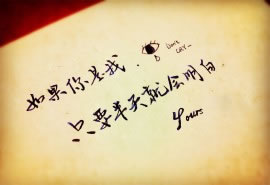 如果你是我.
cry..
只要半天就会明白.
Yours